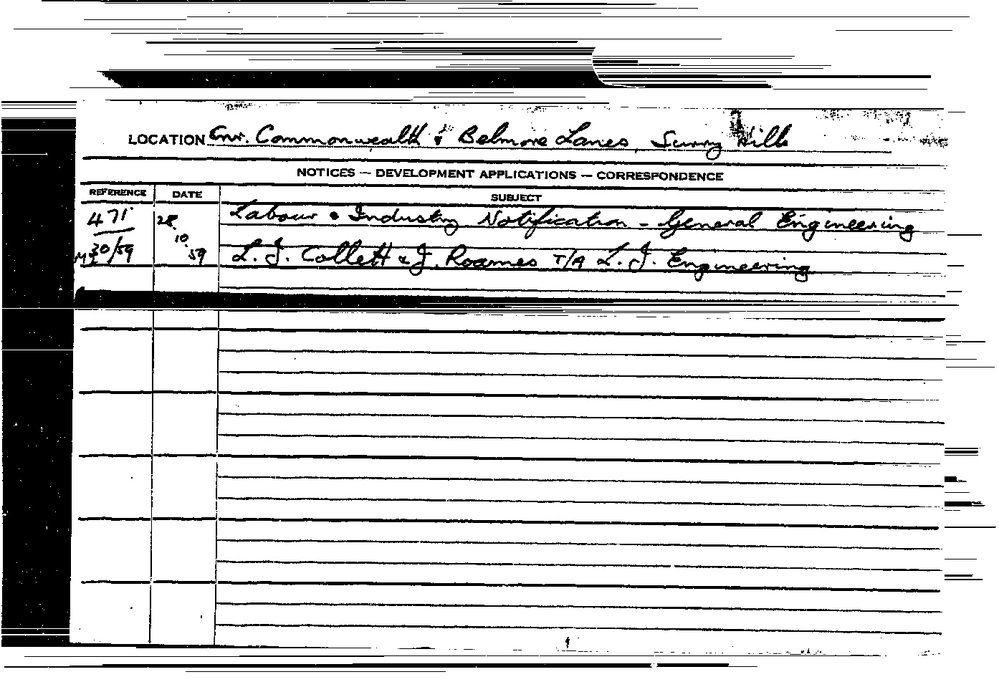 LOCATION Cnr. Commonwealth & Belmore Lanes, Surry Hills
NOTICES — DEVELOPMENT APPLICATIONS — CORRESPONDENCE
REFERENCE DATE SUBJECT
471 28 Labour & Industry Notification - General Engineering
30/59 10 59 L.J. Collett & J. Roames T/A L.J. Engineering